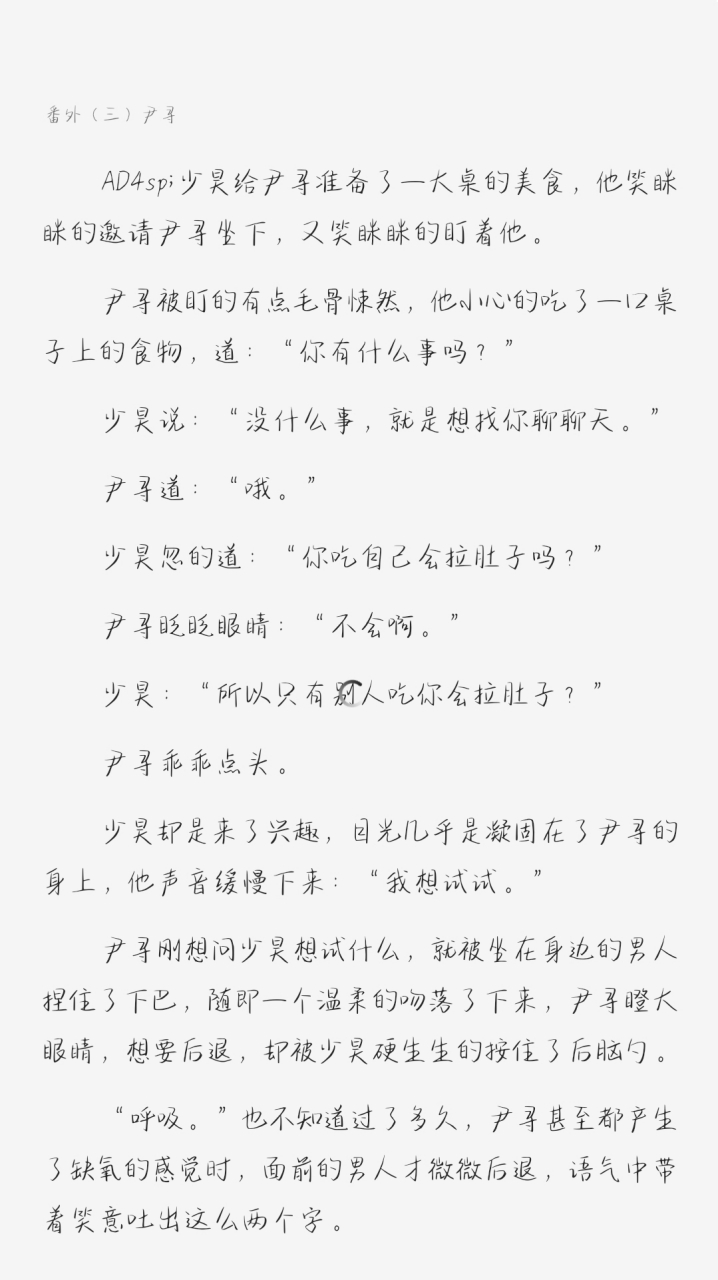 番外（三）尹寻
AD4spi少昊给尹寻准备了一大桌的美食，他笑眯
眯的邀请尹寻坐下，又笑眯眯的盯着他。
尹寻被盯的有点毛骨悚然，他小心的吃了一口桌
子上的食物，道：“你有什么事吗？”
少昊说：“没什么事，就是想找你聊聊天。”
尹寻道：“哦。”
少昊忽的道：“你吃自己会拉肚子吗？”
尹寻眨眨眼睛：“不会啊。”
少昊：“所以只有别人吃你会拉肚子？”
尹寻乖乖点头。
少昊却是来了兴趣，目光几乎是凝固在了尹寻的
身上，他声音缓慢下来：“我想试试。”
尹寻刚想问少昊想试什么，就被坐在身边的男人
捏住了下巴，随即一个温柔的吻落了下来，尹寻瞪大
眼睛，想要后退，却被少昊硬生生的按住了后脑勺。
“呼吸。”也不知道过了多久，尹寻甚至都产生
了缺氧的感觉时，面前的男人才微微后退，语气中带
着笑意吐出这么两个字。